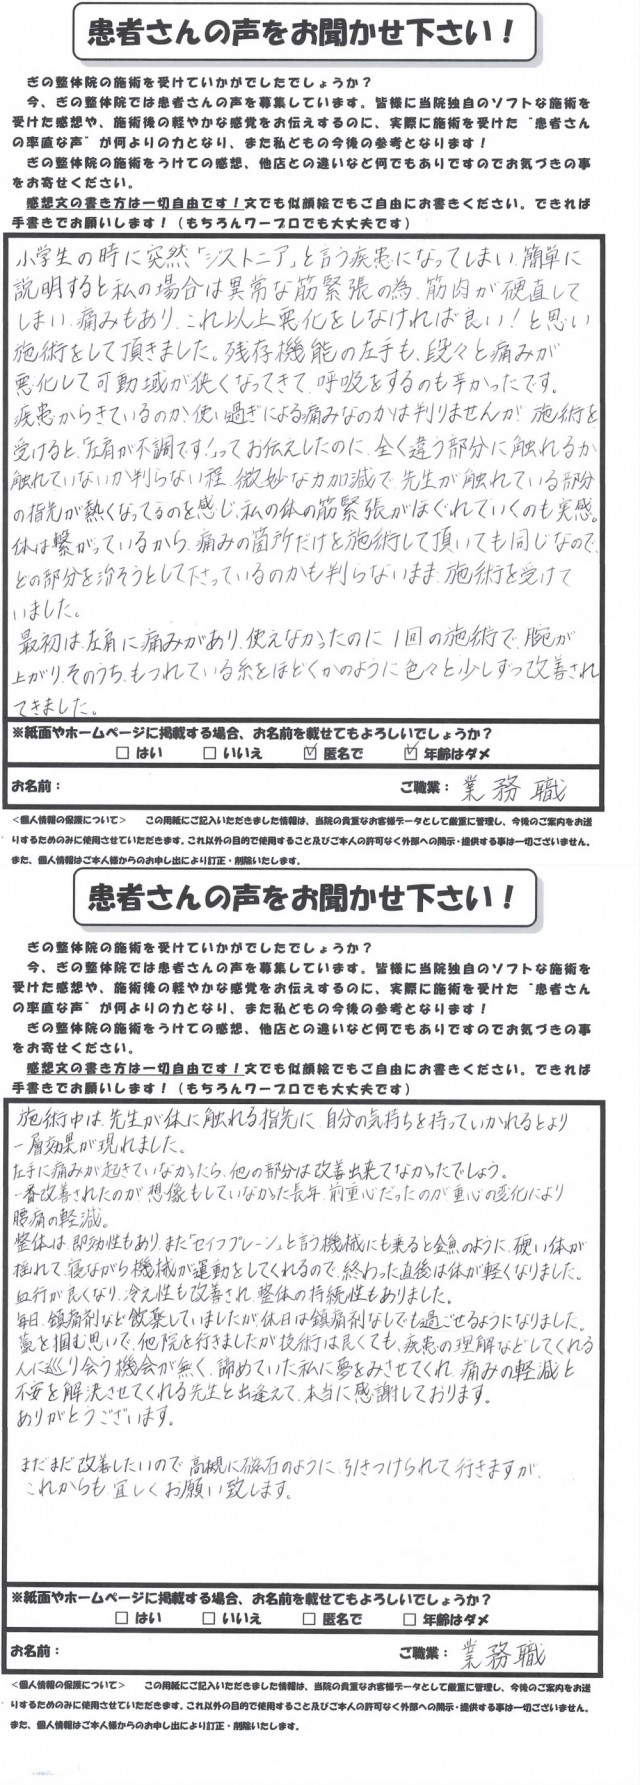 患者さんの声をお聞かせ下さい！
ぎの整体院の施術を受けていかがでしたでしょうか？
今、ぎの整体院では患者さんの声を募集しています。皆様に当院独自のソフトな施術を
受けた感想や、施術後の軽やかな感覚をお伝えするのに、実際に施術を受けた〝患者さん
の率直な声〟が何よりの力となり、また私どもの今後の参考となります！
ぎの整体院の施術をうけての感想、他店との違いなど何でもありですのでお気づきの事
をお寄せください。
感想文の書き方は一切自由です！文でも似顔絵でもご自由にお書きください。できれば
手書きでお願いします！（もちろんワープロでも大丈夫です）
小学生の時に突然「ジストニア」と言う疾患になってしまい、簡単に
説明すると私の場合は異常な筋緊張の為、筋肉が硬直して
しまい、痛みもあり、これ以上悪化をしなければ良い！と思い
施術をして頂きました。残存機能の左手も、段々と痛みが
悪化して可動域が狭くなってきて、呼吸をするのも辛かったです。
疾患からきているのか、使い過ぎによる痛みなのかは判りませんが、施術を
受けると、「左肩が不調です！」ってお伝えしたのに、全く違う部分に触れるか
触れていないか判らない程、微妙な力加減で、先生が触れている部分
の指先が熱くなってるのを感じ、私の体の筋緊張がほぐれていくのも実感。
体は繋がっているから、痛みの箇所だけを施術して頂いても同じなので、
どの部分を治そうとして下さっているのかも判らないまま、施術を受けて
いました。
最初は、左肩に痛みがあり、使えなかったのに、1回の施術で、腕が
上がり、そのうち、もつれている糸をほどくかのように色々と少しずつ改善され
てきました。
※紙面やホームページに掲載する場合、お名前を載せてもよろしいでしょうか？
□ はい □ いいえ ☑ 匿名で ☑ 年齢はダメ
お名前： ご職業：業務職
＜個人情報の保護について＞ この用紙にご記入いただきました情報は、当院の貴重なお客様データとして厳重に管理し、今後のご案内をお送
りするためのみに使用させていただきます。これ以外の目的で使用すること及びご本人の許可なく外部への開示・提供する事は一切ございません。
また、個人情報はご本人様からのお申し出により訂正・削除いたします。
患者さんの声をお聞かせ下さい！
ぎの整体院の施術を受けていかがでしたでしょうか？
今、ぎの整体院では患者さんの声を募集しています。皆様に当院独自のソフトな施術を
受けた感想や、施術後の軽やかな感覚をお伝えするのに、実際に施術を受けた〝患者さん
の率直な声〟が何よりの力となり、また私どもの今後の参考となります！
ぎの整体院の施術をうけての感想、他店との違いなど何でもありですのでお気づきの事
をお寄せください。
感想文の書き方は一切自由です！文でも似顔絵でもご自由にお書きください。できれば
手書きでお願いします！（もちろんワープロでも大丈夫です）
施術中は、先生が体に触れる指先に、自分の気持ちを持っていかれるとより
一層効果が現れました。
左手に痛みが起きていなかったら、他の部分は改善出来てなかったでしょう。
一番改善されたのが想像もしていなかった長年、前重心だったのが重心の変化により
腰痛の軽減。
整体は、即効性もあり、また「セイフプレーン」と言う機械にも乗ると金魚のように、硬い体が
揺れて、寝ながら機械が運動をしてくれるので、終わった直後は体が軽くなりました。
血行が良くなり、冷え性も改善され、整体の持続性もありました。
毎日、鎮痛剤など飲薬していましたが休日は鎮痛剤なしでも過ごせるようになりました。
藁を掴む思いで、他院を行きましたが技術は良くても、疾患の理解などしてくれる
人に巡り会う機会が無く、諦めていた私に夢をみさせてくれ、痛みの軽減と
不安を解決させてくれる先生と出逢えて、本当に感謝しております。
ありがとうございます。
まだまだ改善したいので、高槻に磁石のように、引きつけられて行きますが、
これからも、宜しくお願い致します。
※紙面やホームページに掲載する場合、お名前を載せてもよろしいでしょうか？
□ はい □ いいえ □ 匿名で □ 年齢はダメ
お名前： ご職業：業務職
＜個人情報の保護について＞ この用紙にご記入いただきました情報は、当院の貴重なお客様データとして厳重に管理し、今後のご案内をお送
りするためのみに使用させていただきます。これ以外の目的で使用すること及びご本人の許可なく外部への開示・提供する事は一切ございません。
また、個人情報はご本人様からのお申し出により訂正・削除いたします。